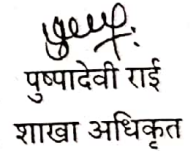 पुष्पादेवी राई
शाखा अधिकृत